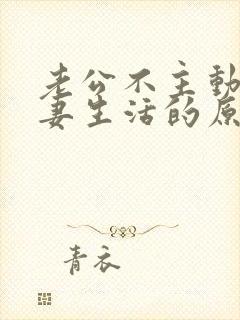 老公不主动
妻生活的原
青衣